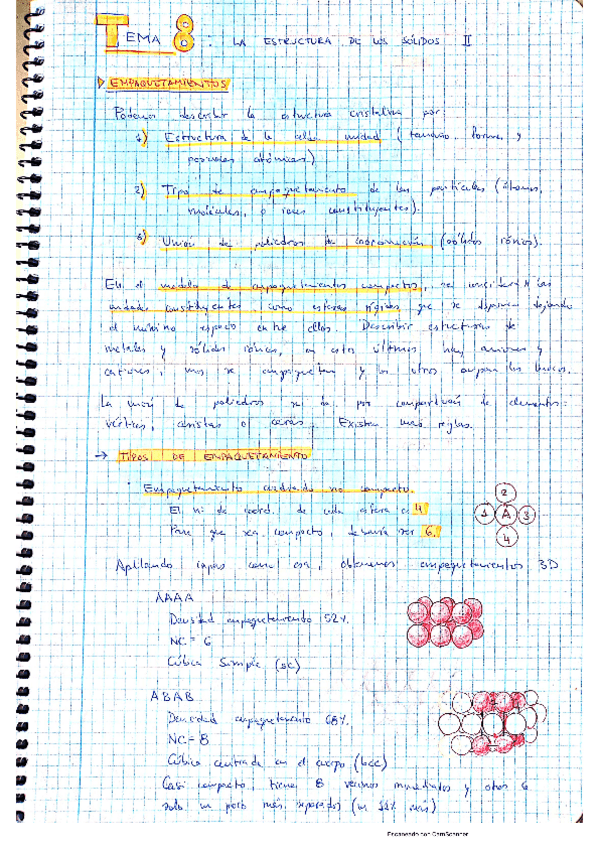 TEMA 8: LA ESTRUCTURA DE LOS SÓLIDOS II
EMPAQUETAMIENTOS
Podemos describir la estructura cristalina por:
1) Estructura de la celda unidad (tamaño, forma y
posiciones atómicas)
2) Tipo de empaquetamiento de las partículas (átomos,
moléculas, o iones constituyentes).
3) Union de poliedros de coordinación (sólidos iónicos).
En el modelo de empaquetamientos compactos, se consideran las
unidades constituyentes como esferas rígidas que se disponen dejando
el mínimo espacio entre ellos. Describir estructuras de
metales y sólidos iónicos, en estos últimos hay aniones y
cationes, unos se empaquetan y los otros ocupan los huecos.
La unión de poliedros se da por compartición de elementos:
vértices, aristas o caras. Existen unas reglas.
→ TIPOS DE EMPAQUETAMIENTO
· Empaquetamiento cuadrado no compacto.
El nº de coord. de cada esfera es 4.
Para que sea compacto, debería ser 6.
2
1 A 3
4
Apilando capas como esa, obtenemos empaquetamientos 3D
AAAA
Densidad empaquetamiento 52%
NC = 6
Cúbica Simple (sc)
ABAB
Densidad empaquetamiento 68%.
NC = 8
Cúbica centrada en el cuerpo (bcc)
Casi compacto, tiene 8 vecinos inmediatos y otros 6
solo un poco más separados (un 15% más)
Escaneado con CamScanner